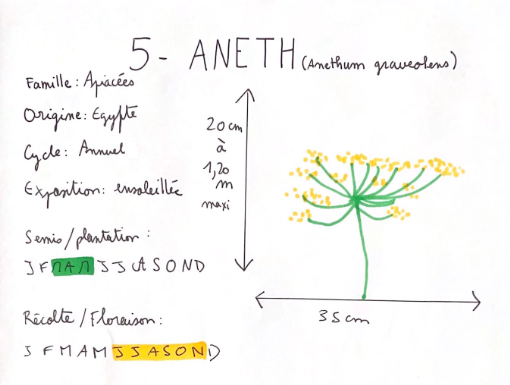 5 - ANETH (Anethum graveolens)
Famille : Apiacées
Origine : Egypte
Cycle : Annuel
Exposition : ensoleillée
Semis/plantation :
J F M A M J J A S O N D
Récolte / Floraison :
J F M A M J J A S O N D
20 cm
à
1,20
m
maxi
35 cm